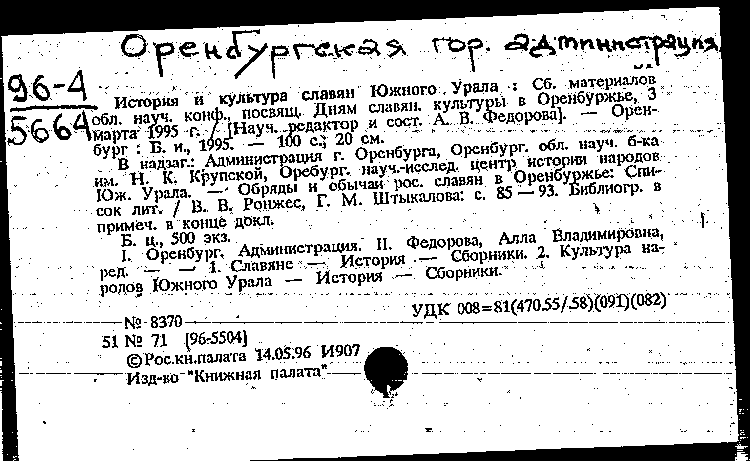 Оренбургская гор. администрация
96-4
5664
История и культура славян Южного Урала : Сб. материалов
обл. науч. конф., посвящ. Дням славян. культуры в Оренбуржье, 3
марта 1995 г. / [Науч. редактор и сост. А. В. Федорова]. — Орен-
бург : Б. и., 1995. — 100 с.; 20 см.
В надзаг.: Администрация г. Оренбурга, Оренбург. обл. науч. б-ка
им. Н. К. Крупской, Оребург. науч.-исслед. центр истории народов
Юж. Урала. — Обряды и обычаи рос. славян в Оренбуржье: Спи-
сок лит. / В. В. Ронжес, Г. М. Штыкалова: с. 85 — 93. Библиогр. в
примеч. в конце докл.
Б. ц., 500 экз.
I. Оренбург. Администрация. II. Федорова, Алла Владимировна,
ред. — — 1. Славяне — История — Сборники. 2. Культура на-
родов Южного Урала — История — Сборники.
УДК 008=81(470.55/.58)(091)(082)
№ 8370
51 № 71 [96-5504]
©Рос.кн.палата 14.05.96 И907
Изд-во "Книжная палата"